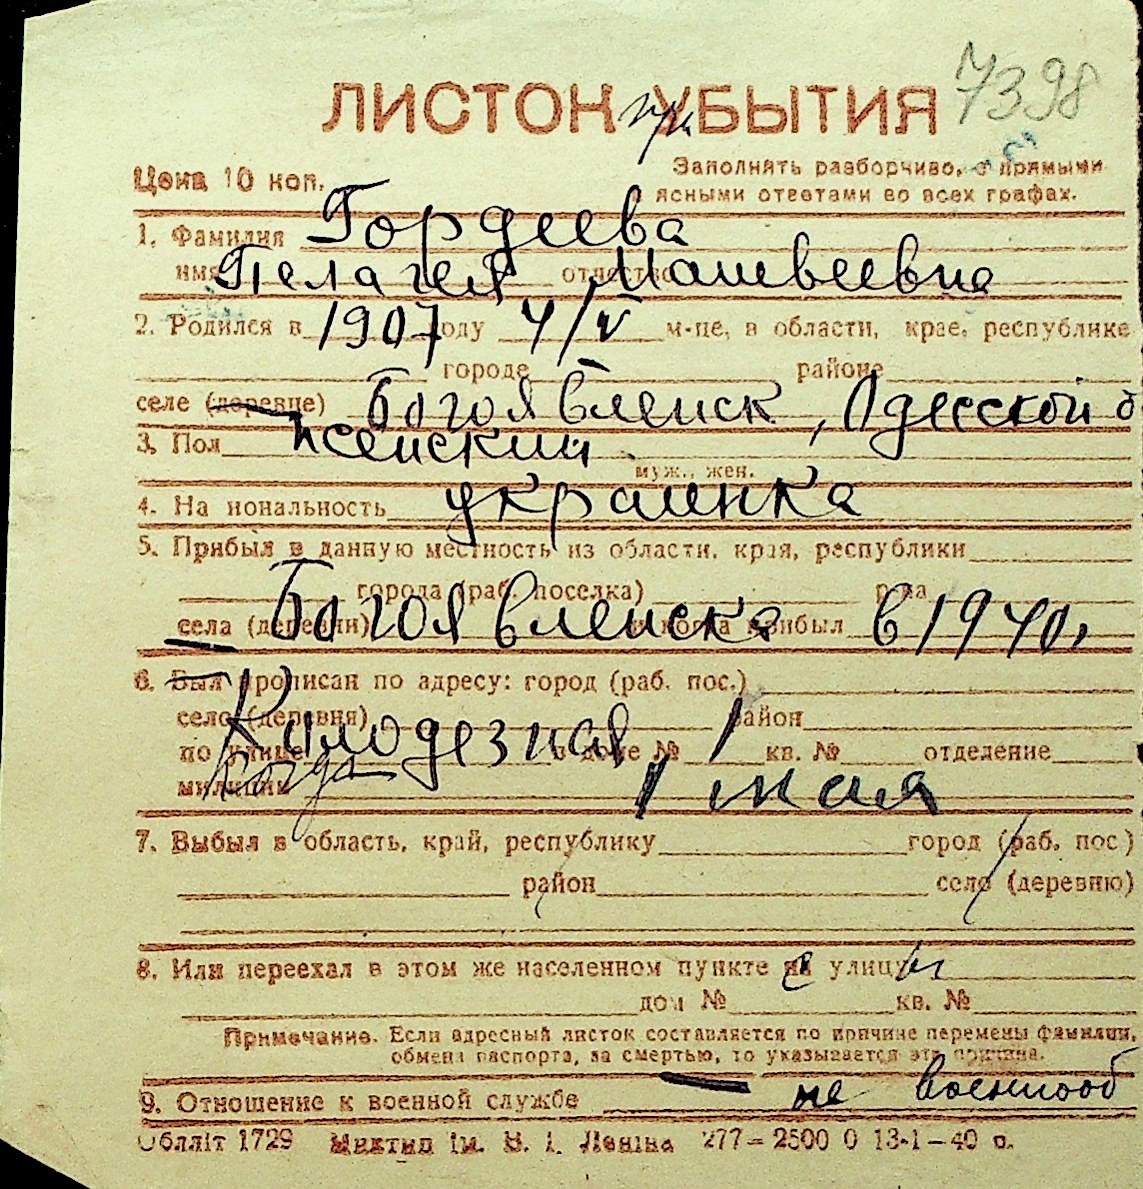 7398
ЛИСТОН при УБЫТИЯ
Цена 10 коп.
Заполнять разборчиво, с прямыми
ясными ответами во всех графах.
1. Фамилия Гордеева
имя Пелагея отчество Матвеевна
2. Родился в 1907 году 4/V м-це, в области, крае, республике
городе районе
селе (деревце) Богоявленск, Одесской о
3. Пол женский
муж., жен.
4. На иональность украинка
5. Прибыл в данную местность из области, края, республики
города (раб. поселка) р на
села (деревни) Богоявленска и когда прибыл в 1940.
6. Был прописан по адресу: город (раб. пос.)
село (деревня) район
по улице Колодезная в доме № 1 кв. № отделение
милиции Когда 1 мая
7. Выбыл в область, край, республику город (раб. пос)
район село (деревню)
8. Или переехал в этом же населенном пункте с улицы
дом № кв. №
Примечание. Если адресный листок составляется по причине перемены фамилии,
обмена паспорта, за смертью, то указывается эта причина.
9. Отношение к военной службе не военнооб
Обллiт 1729 Миктип iм. В. I. Ленiна 277–2500 0 13-1–40 р.